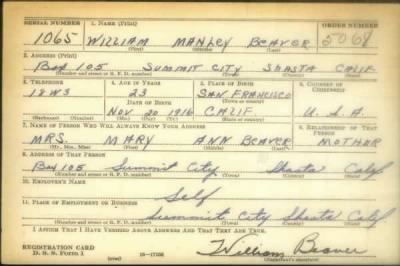 SERIAL NUMBER 1. NAME (Print) ORDER NUMBER
1065 WILLIAM MANLEY BEAVER 5068
(First) (Middle) (Last)
2. ADDRESS (Print)
BOX 105 SUMMIT CITY SHASTA CALIF
(Number and street or R. F. D. number) (Town) (County) (State)
3. TELEPHONE 4. AGE IN YEARS 5. PLACE OF BIRTH 6. COUNTRY OF CITIZENSHIP
18W3 23 SAN FRANCISCO
DATE OF BIRTH (Town or county)
NOV 20 1916 CALIF U.S.A
(Exchange) (Number) (Mo.) (Day) (Yr.) (State or country)
7. NAME OF PERSON WHO WILL ALWAYS KNOW YOUR ADDRESS 8. RELATIONSHIP OF THAT PERSON
MRS. MARY ANN BEAVER MOTHER
(Mr., Mrs., Miss) (First) (Middle) (Last)
9. ADDRESS OF THAT PERSON
Box 105 Summit City Shasta Calif
(Number and street or R. F. D. number) (Town) (County) (State)
10. EMPLOYER'S NAME
Self
11. PLACE OF EMPLOYMENT OR BUSINESS
Summit City Shasta Calif
(Number and street or R. F. D. number) (Town) (County) (State)
I AFFIRM THAT I HAVE VERIFIED ABOVE ANSWERS AND THAT THEY ARE TRUE.
REGISTRATION CARD
D. S. S. Form 1 (over) William Beaver
(Registrant's signature)